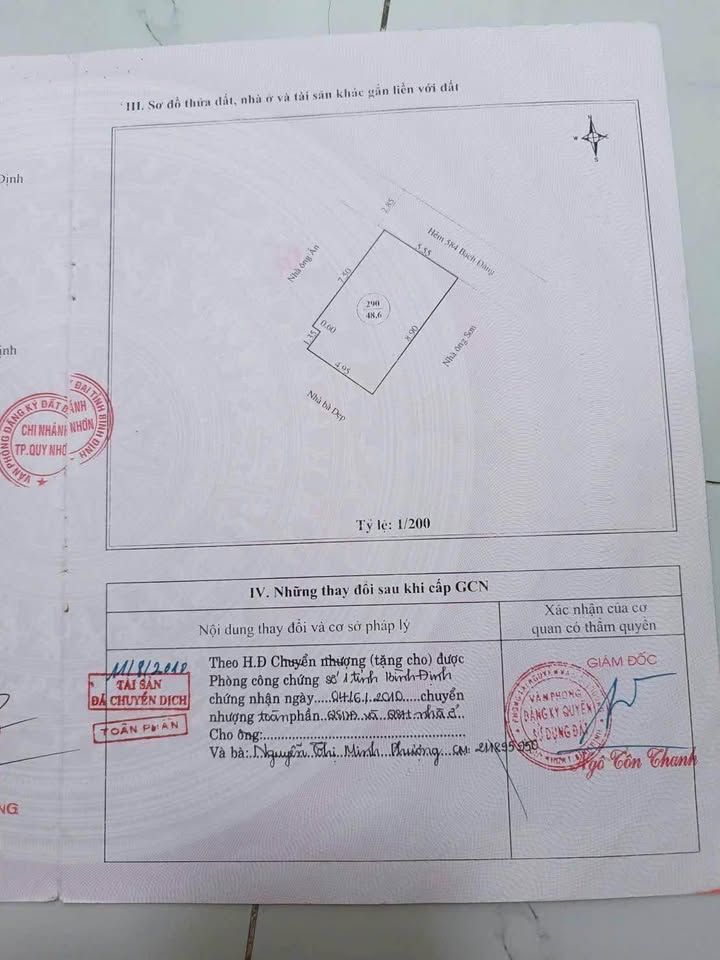 III. Sơ đồ thửa đất, nhà ở và tài sản khác gắn liền với đất
N
W
E
S
Định
2.85
Hẻm 584 Bạch Đằng
5.55
Nhà ông Ẩn
7.50
290
48,6
0.60
1.35
8.90
Nhà ông Sơn
4.95
Nhà bà Dẹp
ịnh
VĂN PHÒNG ĐĂNG KÝ ĐẤT Đ
CHI NHÁNH
TP.QUY NHƠ
ĐAI TỈNH BÌNH ĐỊNH
ÁNH
NHƠN
Tỷ lệ: 1/200
IV. Những thay đổi sau khi cấp GCN
Nội dung thay đổi và cơ sở pháp lý
Xác nhận của cơ
quan có thẩm quyền
11/8/2010
TÀI SẢN
ĐÃ CHUYỂN DỊCH
TOÀN PHẦN
Theo H.Đ Chuyển nhượng (tặng cho) được
Phòng công chứng số 1 tỉnh Bình Định
chứng nhận ngày 04/6/2010 chuyển
nhượng toàn phần
Cho ông:
Và bà: Nguyễn Thị Minh Phương
GIÁM ĐỐC
VĂN PHÒNG
ĐĂNG KÝ QUYỀN
SỬ DỤNG ĐẤT
Ngô Tôn Thanh
NG